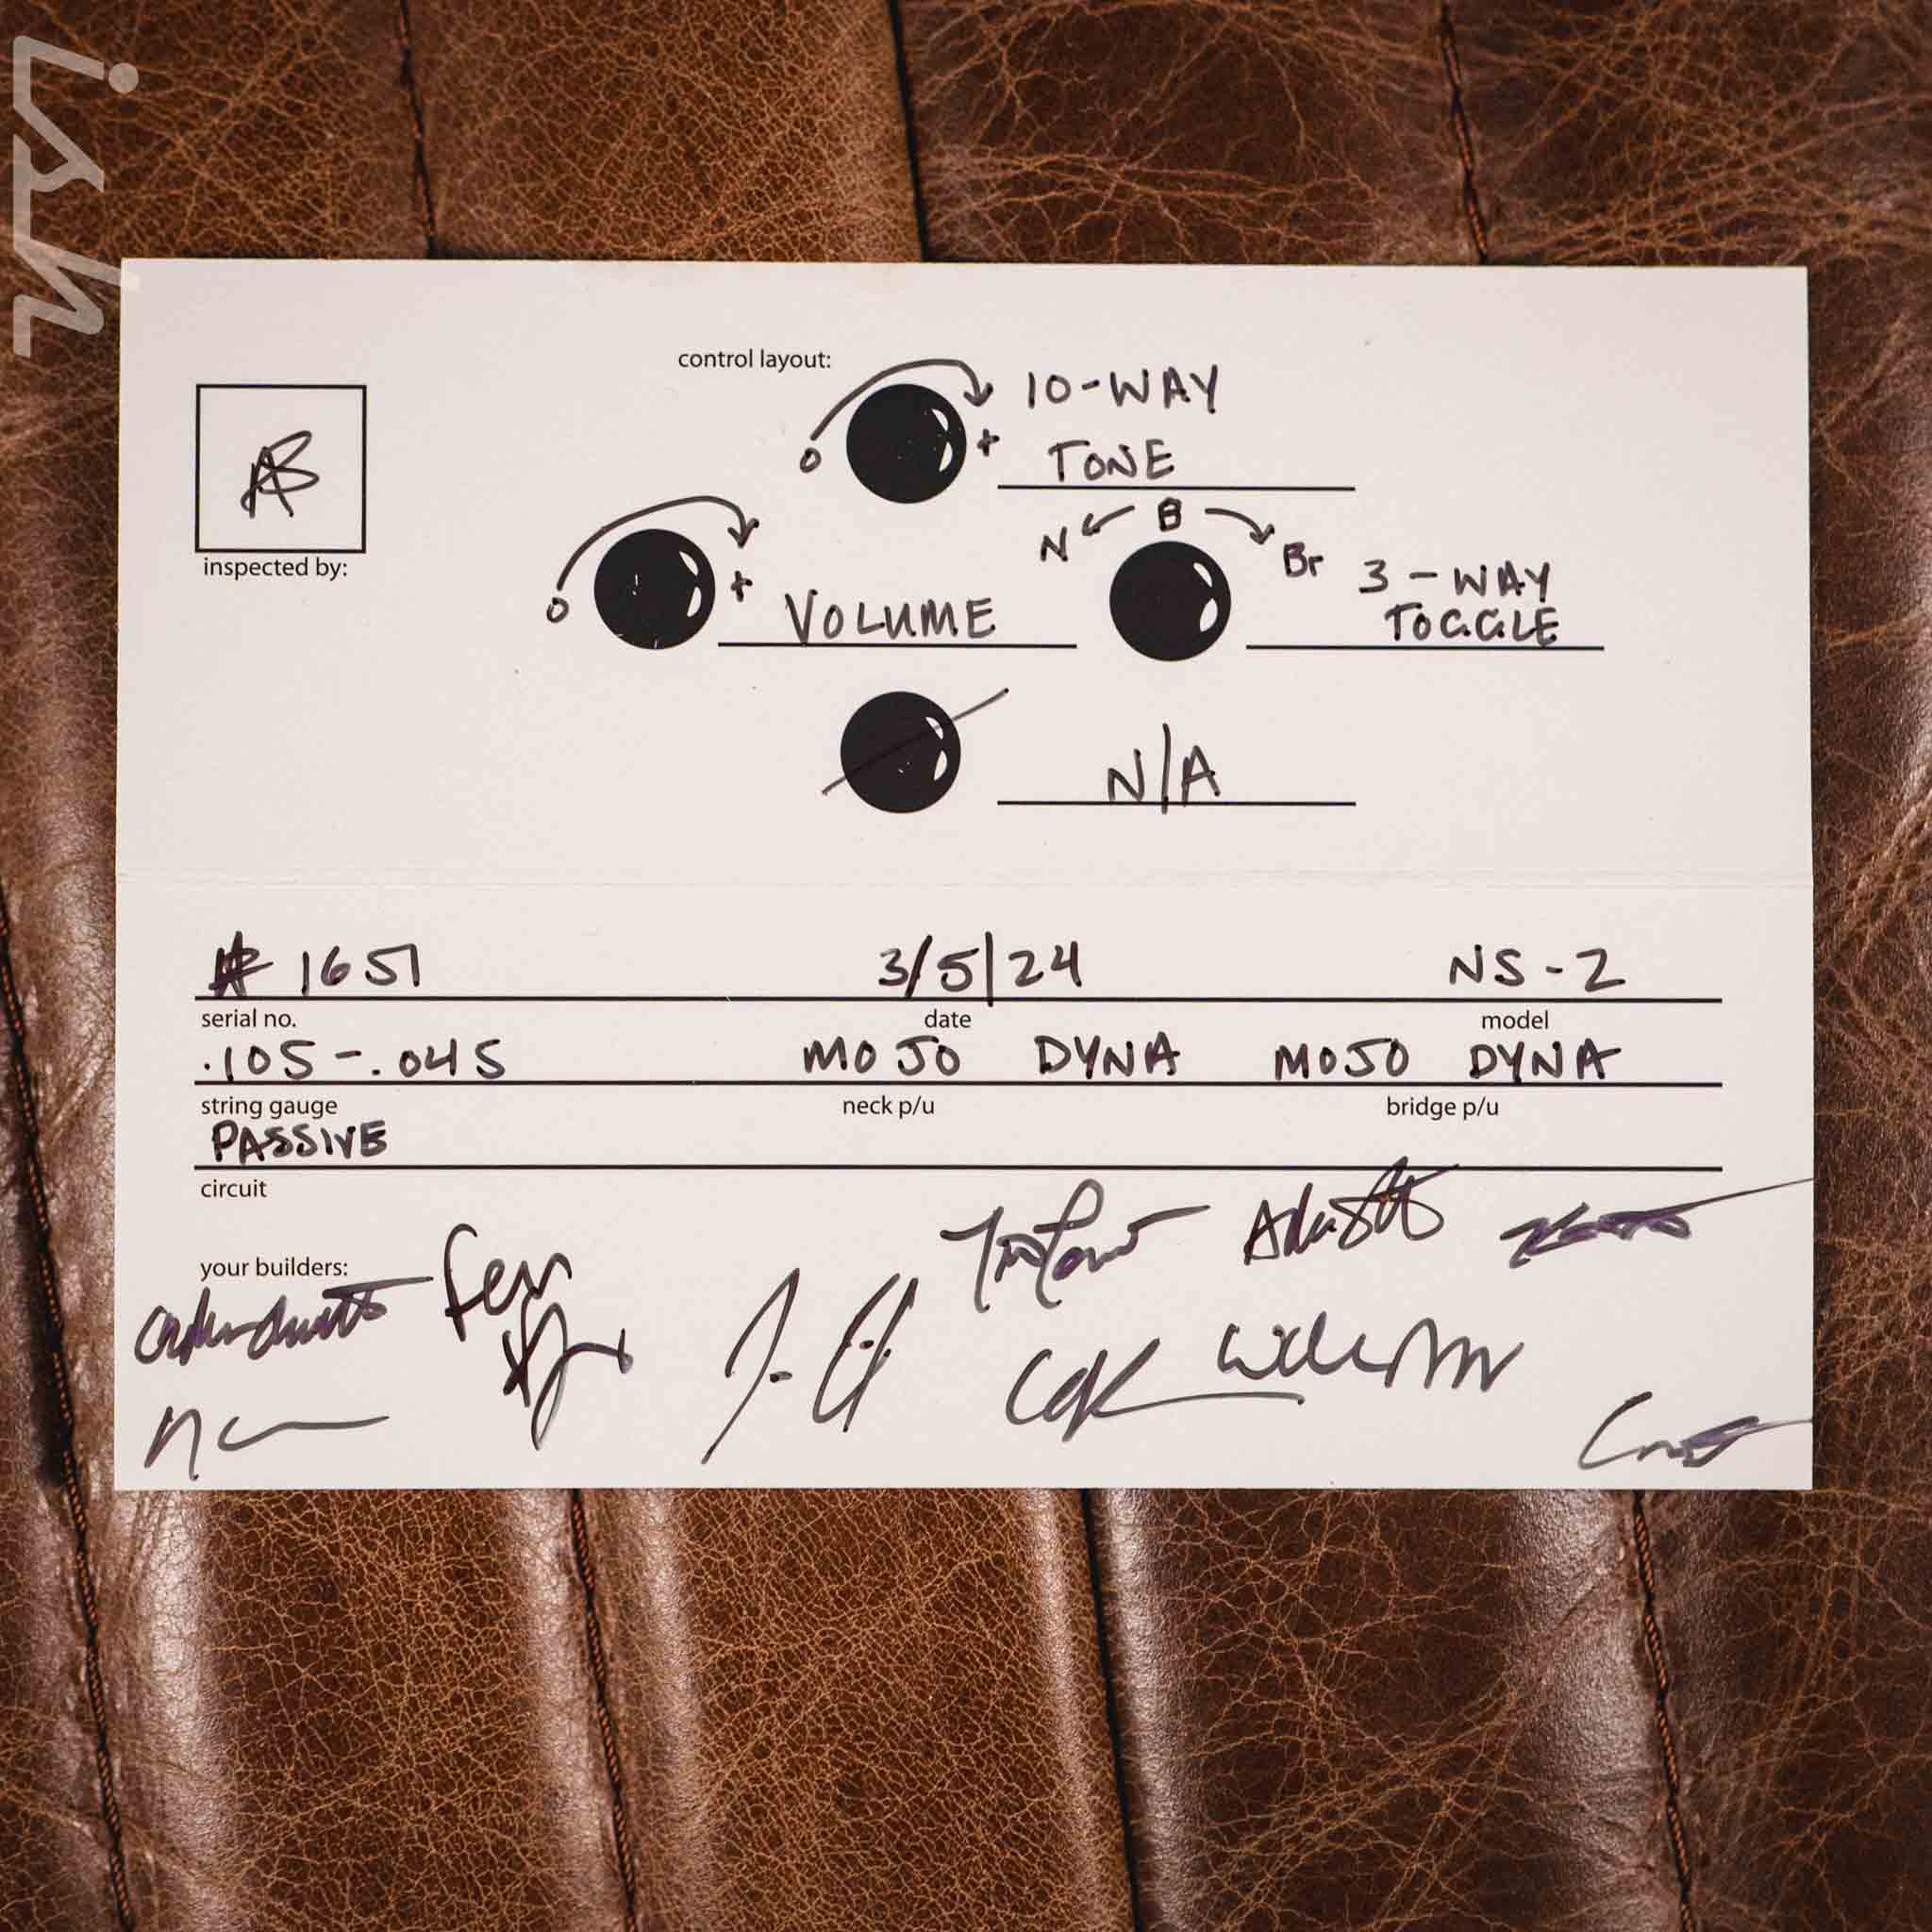 ish
control layout:
10-WAY
0 + TONE
N B Br
0 + VOLUME
3-WAY
TOGGLE
AB
inspected by:
N/A
# 1651 3/5/24 NS-2
serial no. date model
.105-.045 MOJO DYNA MOJO DYNA
string gauge neck p/u bridge p/u
PASSIVE
circuit
your builders: